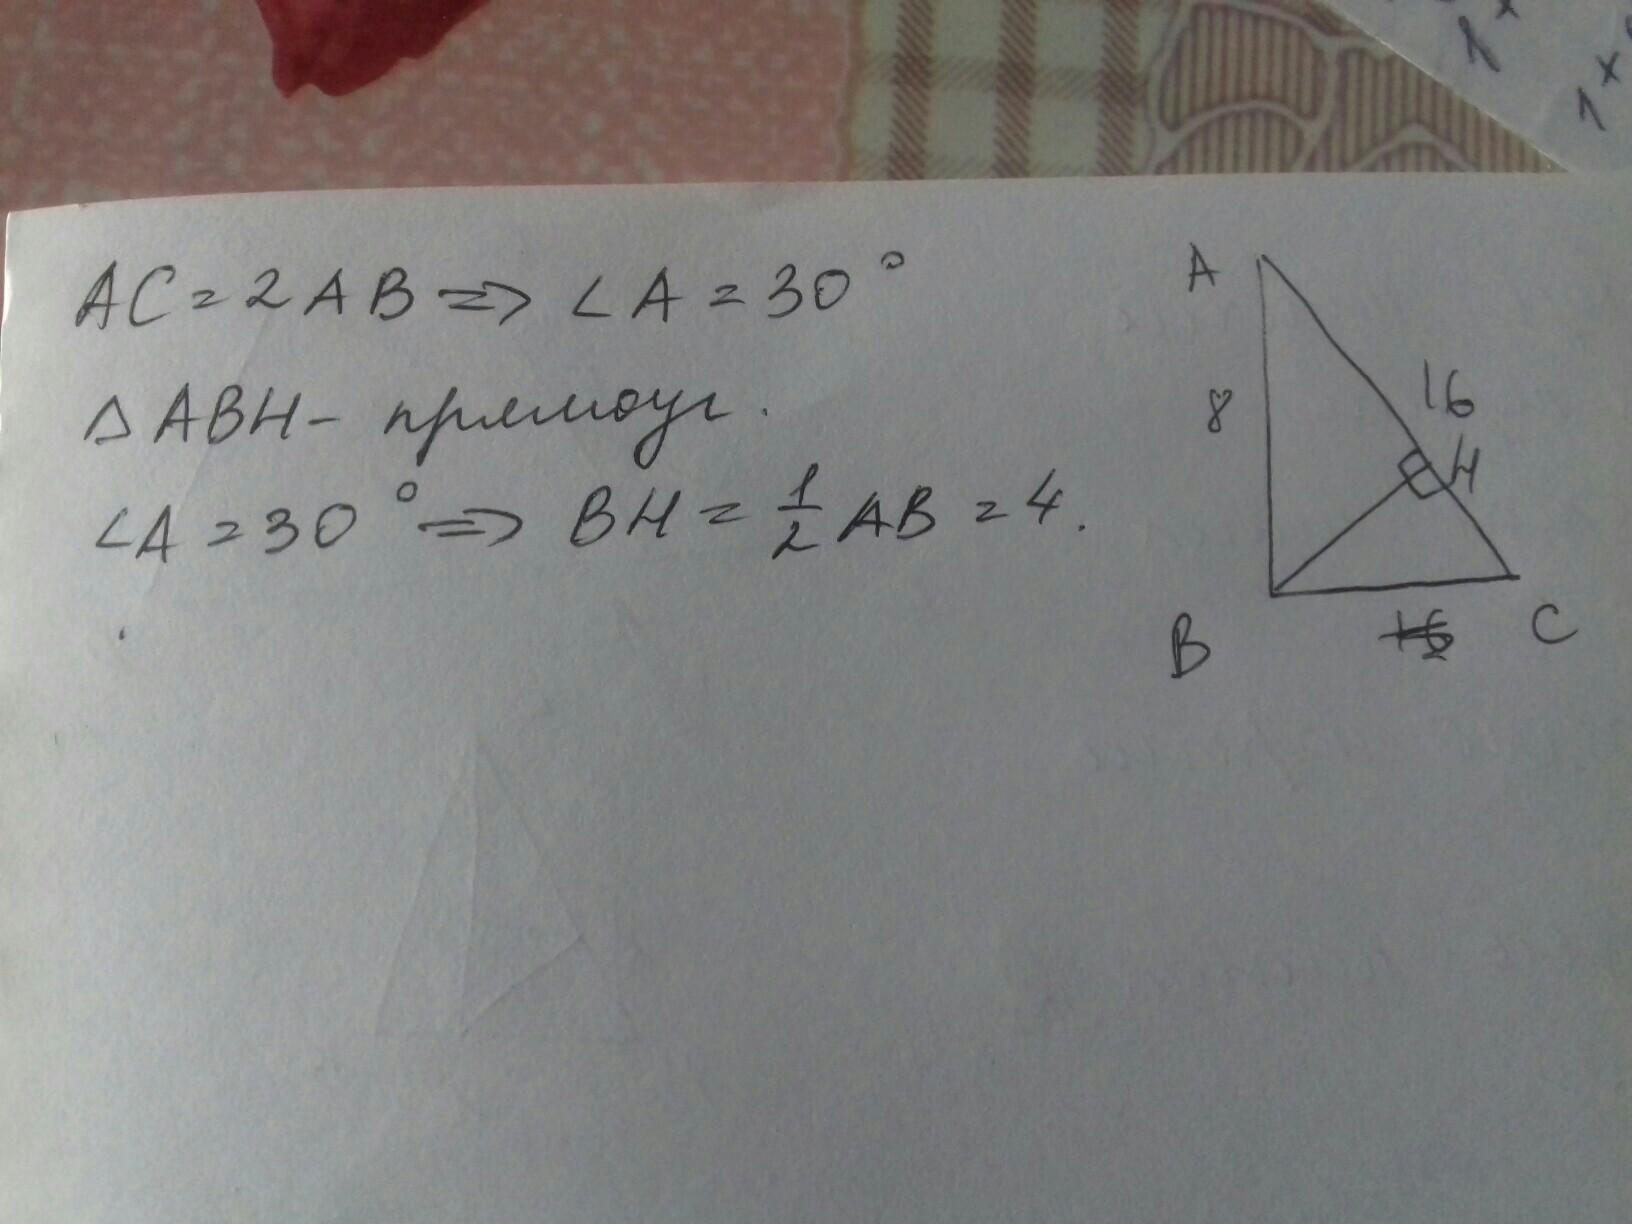 AC = 2AB => ∠A = 30°
△ABH - прямоуг.
∠A = 30° => BH = 1/2 AB = 4.
A
16
8
H
B
C
1 x
1 x